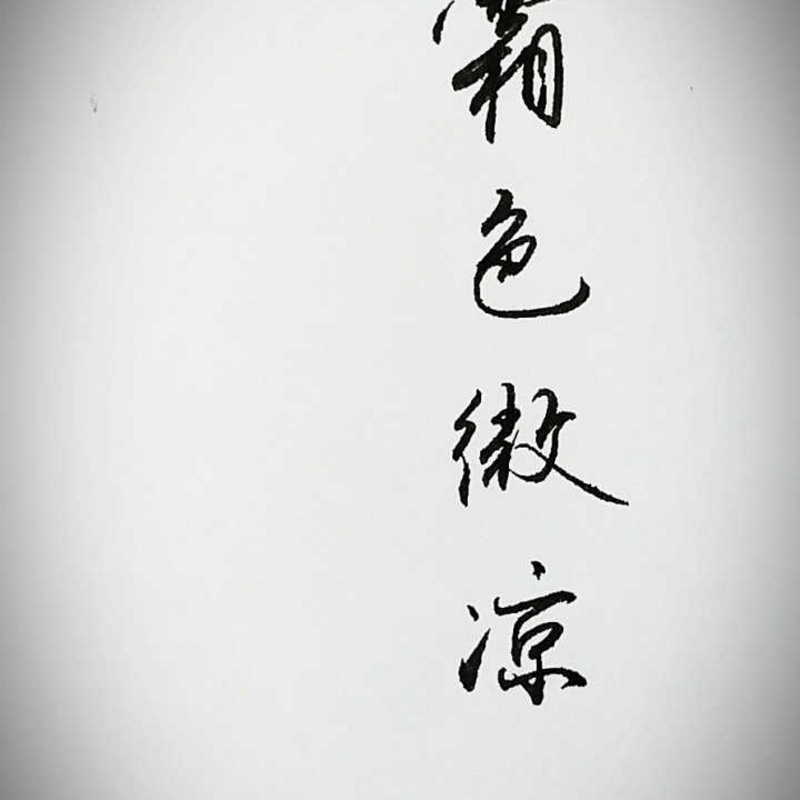 霜色微凉